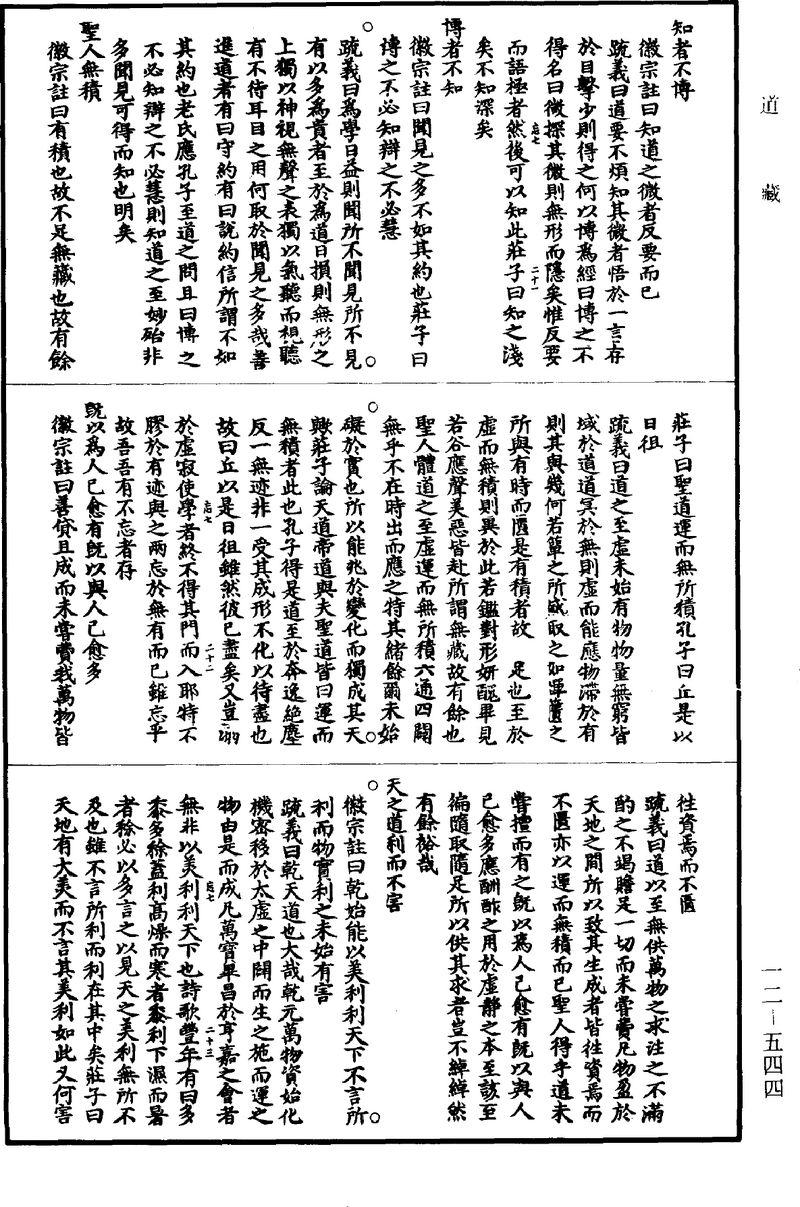 道藏
知者不博
徽宗註曰知道之微者反要而已
疏義曰道要不煩知其微者悟於一言存
於目擊少則得之何以博為經曰博之不
得名曰微探其微則無形而隱矣惟反要
而語極者然後可以知此莊子曰知之淺
矣不知深矣
博者不知
徽宗註曰聞見之多不如其約也莊子曰
博之不必知辯之不必慧
疏義曰為學日益則聞所不聞見所不見
有以多為貴者至於為道日損則無形之
上獨以神視無聲之表獨以氣聽而視聽
有不待耳目之用何取於聞見之多哉善
進道者有曰守約有曰說約信所謂不如
其約也老氏應孔子至道之問且曰博之
不必知辯之不必慧則知道之至妙殆非
多聞見可得而知也明矣
聖人無積
徽宗註曰有積也故不足無藏也故有餘
莊子曰聖道運而無所積孔子曰丘是以
日徂
疏義曰道之至虛未始有物物量無窮皆
域於道道冥於無則虛而能應物滯於有
則其與幾何若簞之所盛取之如單簣之
所與有時而匱是有積者故 足也至於
虛而無積則異於此若鑑對形妍醜畢見
若谷應聲美惡皆赴所謂無藏故有餘也
聖人體道之至虛運而無所積六通四闢
無乎不在時出而應之特其緒餘爾未始
礙於實也所以能兆於變化而獨成其天
歟莊子論天道帝道與夫聖道皆曰運而
無積者此也孔子得是道至於奔逸絕塵
反一無迹非一受其成形不化以待盡也
故曰丘以是日徂雖然彼已盡矣又豈溺
於虛寂使學者終不得其門而入耶特不
膠於有迹與之兩忘於無有而已雖忘乎
故吾吾有不忘者存
既以為人己愈有既以與人己愈多
徽宗註曰善貸且成而未嘗費我萬物皆
往資焉而不匱
疏義曰道以至無供萬物之求注之不滿
酌之不竭贍足一切而未嘗費凡物盈於
天地之間所以致其生成者皆往資焉而
不匱亦以運而無積而已聖人得乎道未
嘗擅而有之既以為人己愈有既以與人
己愈多應酬酢之用於虛靜之本至該至
徧隨取隨足所以供其求者豈不綽綽然
有餘裕哉
天之道利而不害
徽宗註曰乾始能以美利利天下不言所
利而物實利之未始有害
疏義曰乾天道也大哉乾元萬物資始化
機密移於太虛之中闢而生之施而運之
物由是而成凡萬寶畢昌於亨嘉之會者
無非以美利利天下也詩歌豐年有曰多
黍多稌蓋利高燥而寒者黍利下濕而暑
者稌必以多言之以見天之美利無所不
及也雖不言所利而利在其中矣莊子曰
天地有大美而不言其美利如此又何害
一二－五四四